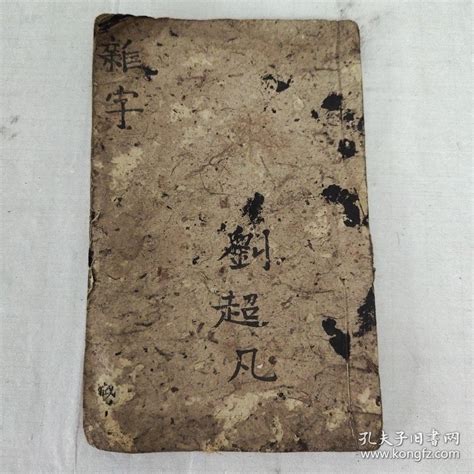 雜字
劉超凡
孔夫子旧书网
www.kongfz.com